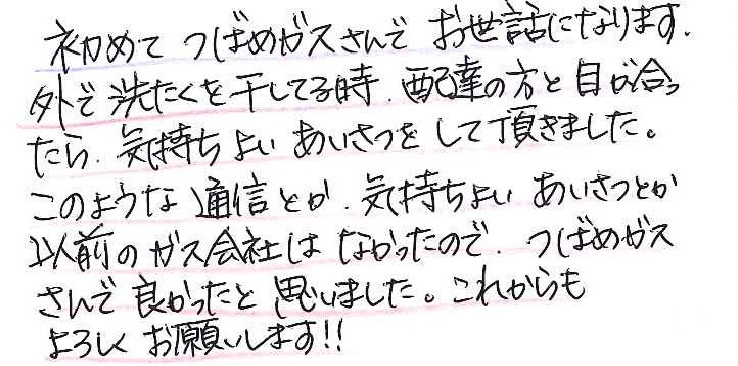 初めて つばめガスさんで お世話になります.
外で洗たくを干してる時、配達の方と目が合っ
たら、気持ちよい あいさつをして頂きました。
このような通信とか、気持ちよい あいさつとか
以前のガス会社は なかったので、つばめガス
さんで良かったと思いました。これからも
よろしくお願いします!!